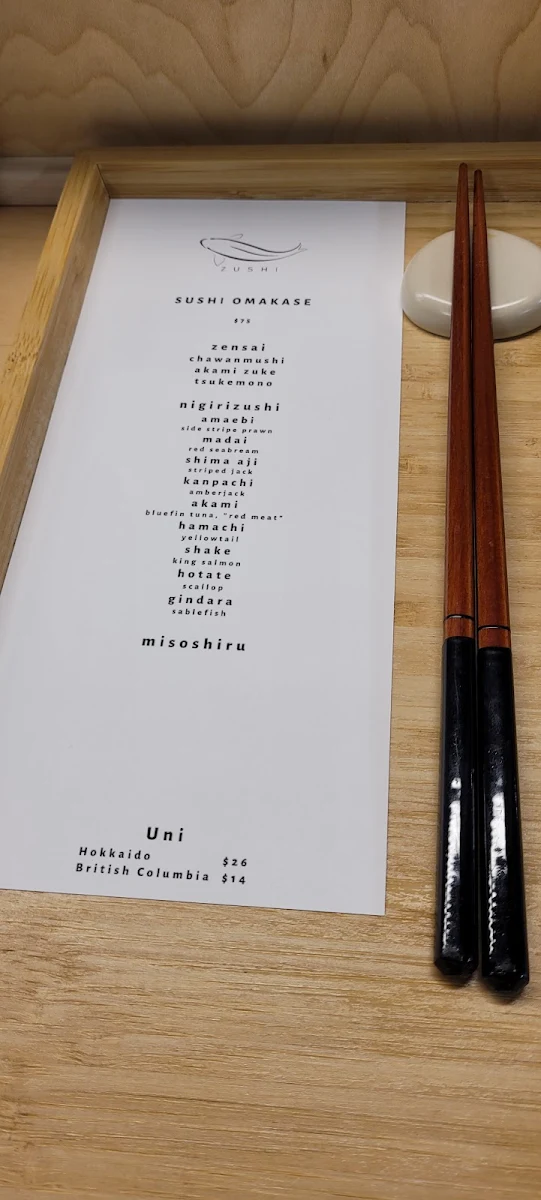 ZUSHI
SUSHI OMAKASE
$75
zensai
chawanmushi
akami zuke
tsukemono
nigirizushi
amaebi
side stripe prawn
madai
red seabream
shima aji
striped jack
kanpachi
amberjack
akami
bluefin tuna, "red meat"
hamachi
yellowtail
shake
king salmon
hotate
scallop
gindara
sablefish
misoshiru
Uni
Hokkaido $26
British Columbia $14